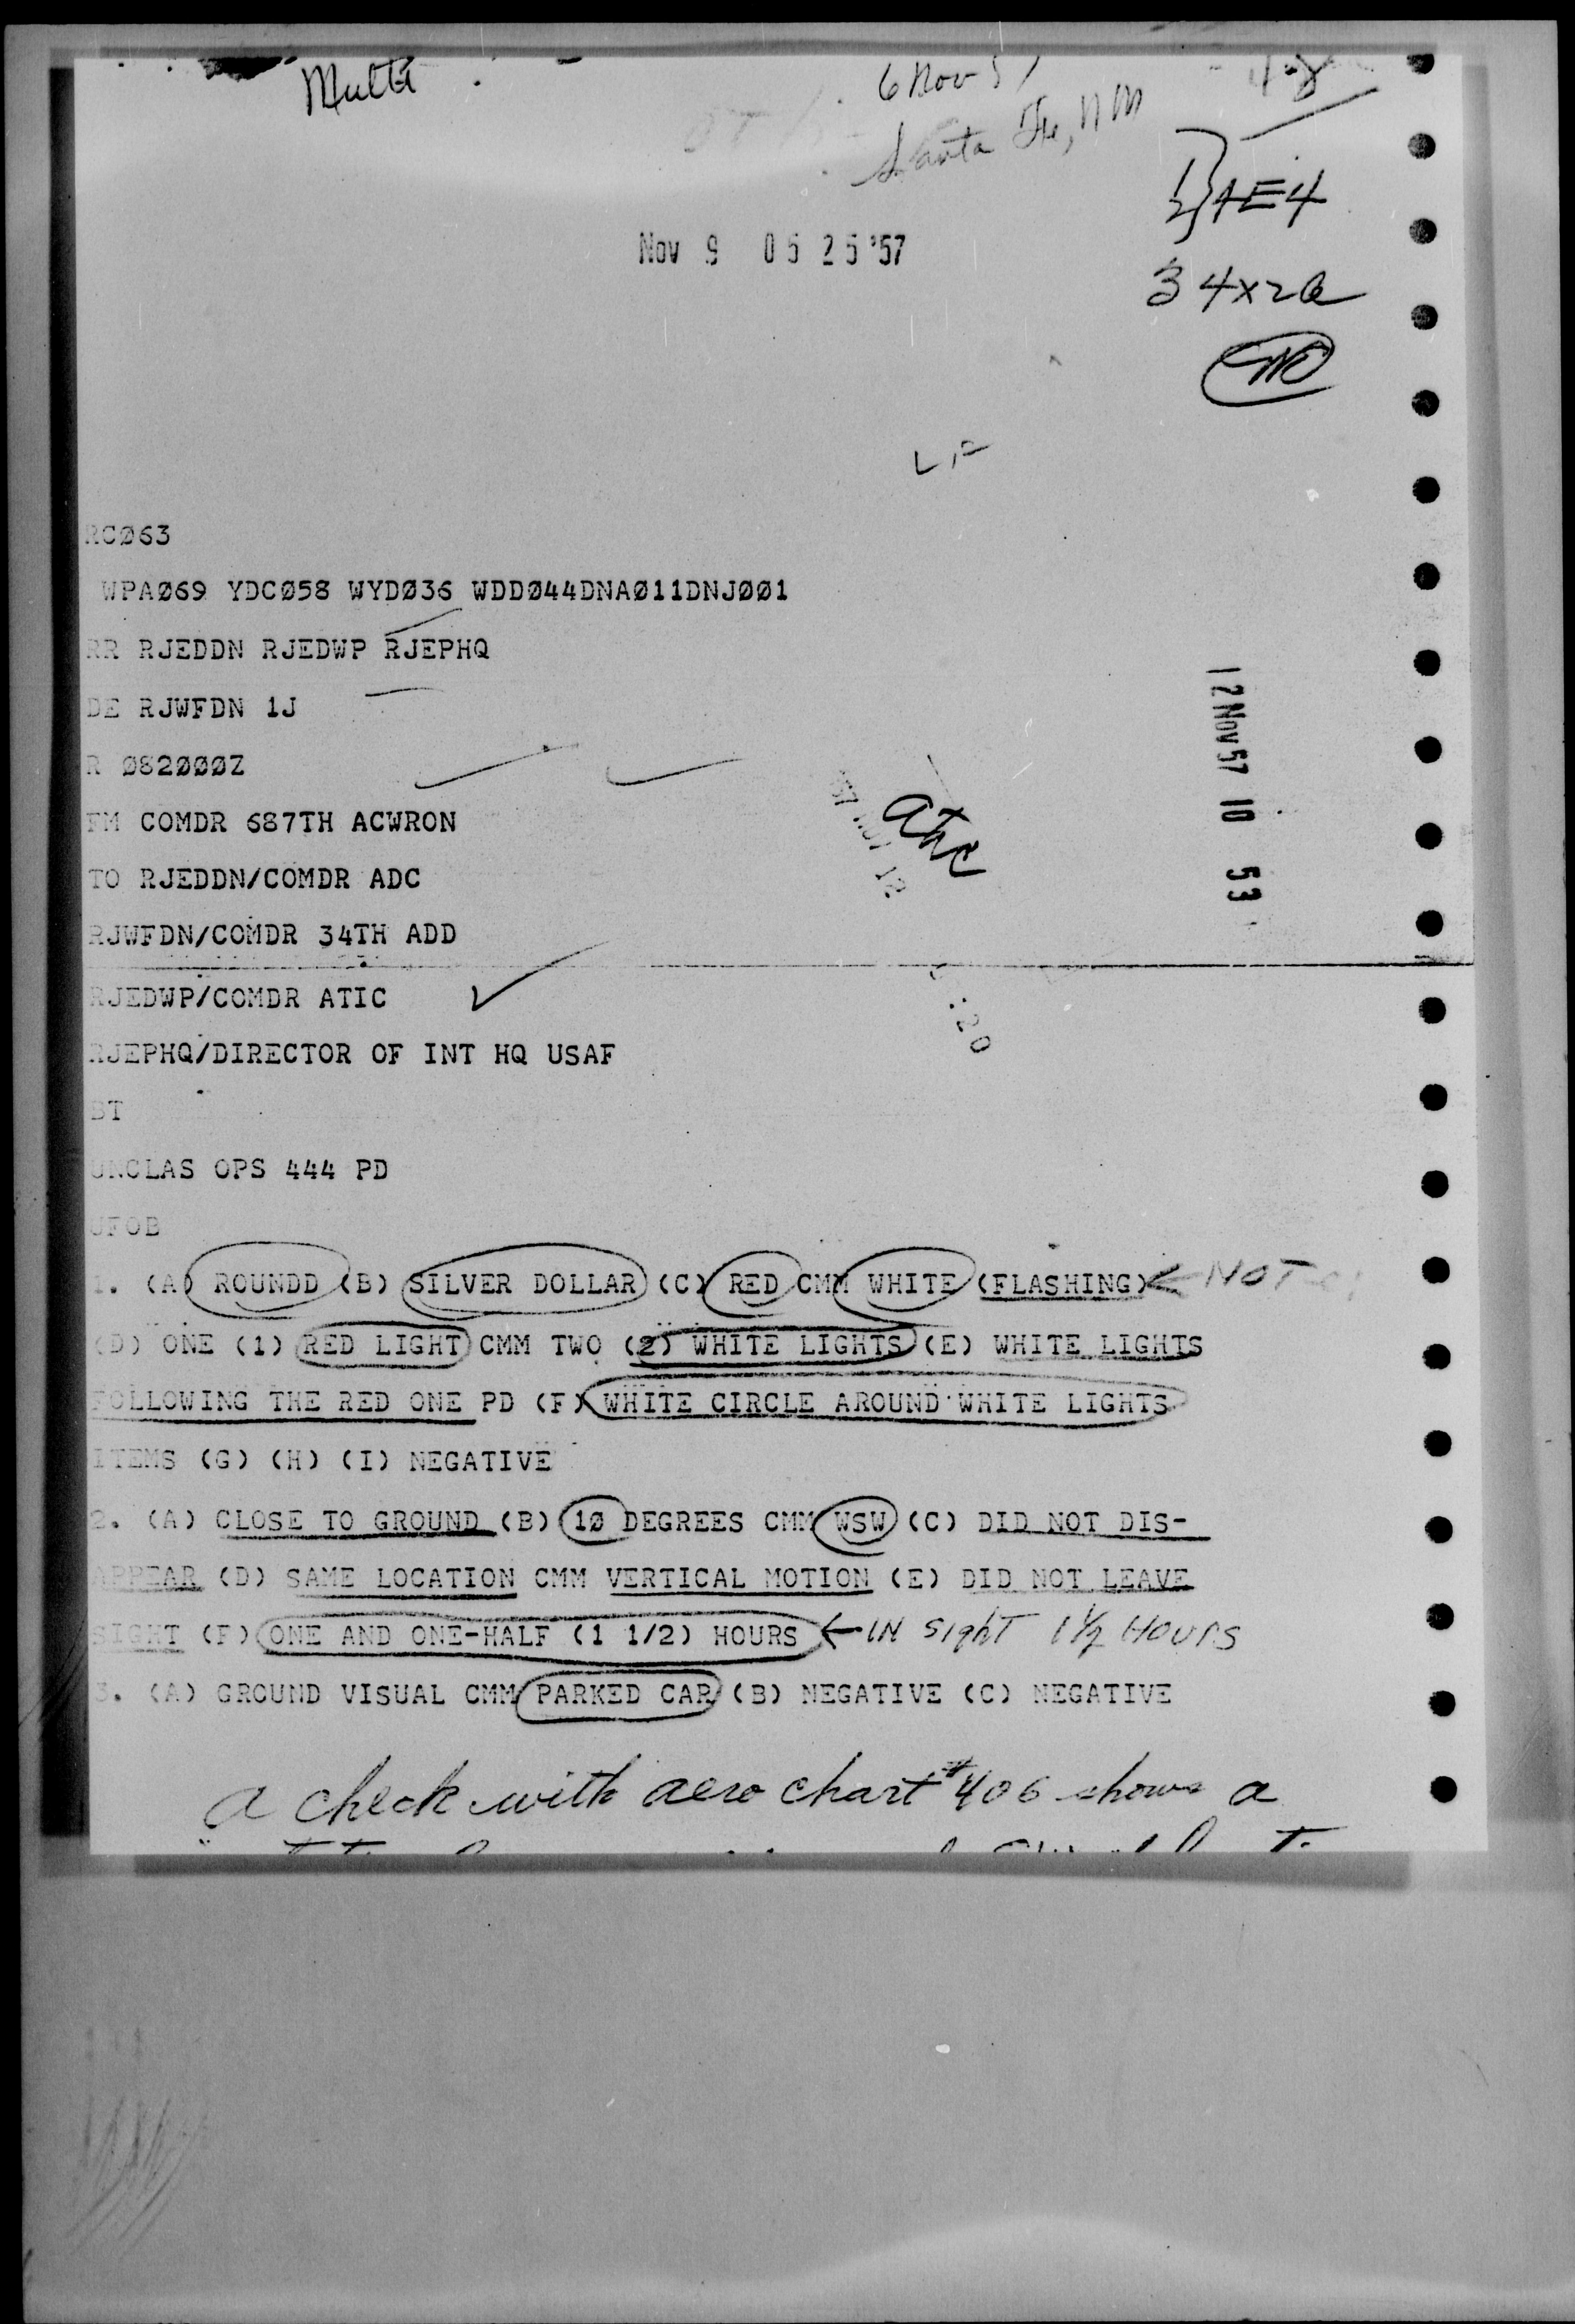 Multi
6 Nov 57
Santa Fe, NM
AE4
3 4x2a
Nov 9 05 25 '57
RCØ63
WPAØ69 YDCØ58 WYDØ36 WDDØ44DNAØ11DNJØØ1
RR RJEDDN RJEDWP RJEPHQ
DE RJWFDN 1J
R Ø82ØØØZ
FM COMDR 687TH ACWRON
TO RJEDDN/COMDR ADC
RJWFDN/COMDR 34TH ADD
RJEDWP/COMDR ATIC
RJEPHQ/DIRECTOR OF INT HQ USAF
12 Nov 57 10 53
BT
UNCLAS OPS 444 PD
UFOB
1. (A) ROUNDD (B) SILVER DOLLAR (C) RED CMM WHITE (FLASHING) NOT
(D) ONE (1) RED LIGHT CMM TWO (2) WHITE LIGHTS (E) WHITE LIGHTS
FOLLOWING THE RED ONE PD (F) WHITE CIRCLE AROUND WHITE LIGHTS
ITEMS (G) (H) (I) NEGATIVE
2. (A) CLOSE TO GROUND (B) 1Ø DEGREES CMM WSW (C) DID NOT DIS-
APPEAR (D) SAME LOCATION CMM VERTICAL MOTION (E) DID NOT LEAVE
SIGHT (F) ONE AND ONE-HALF (1 1/2) HOURS ← IN SighT 1½ HOURS
3. (A) GROUND VISUAL CMM PARKED CAR (B) NEGATIVE (C) NEGATIVE
a check with aero chart #406 shows a